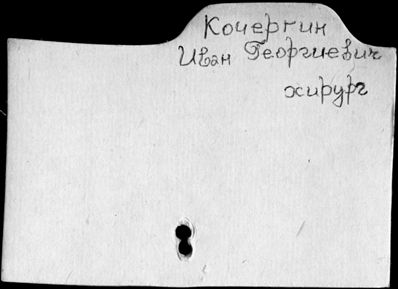 Кочергин
Иван Георгиевич
хирург